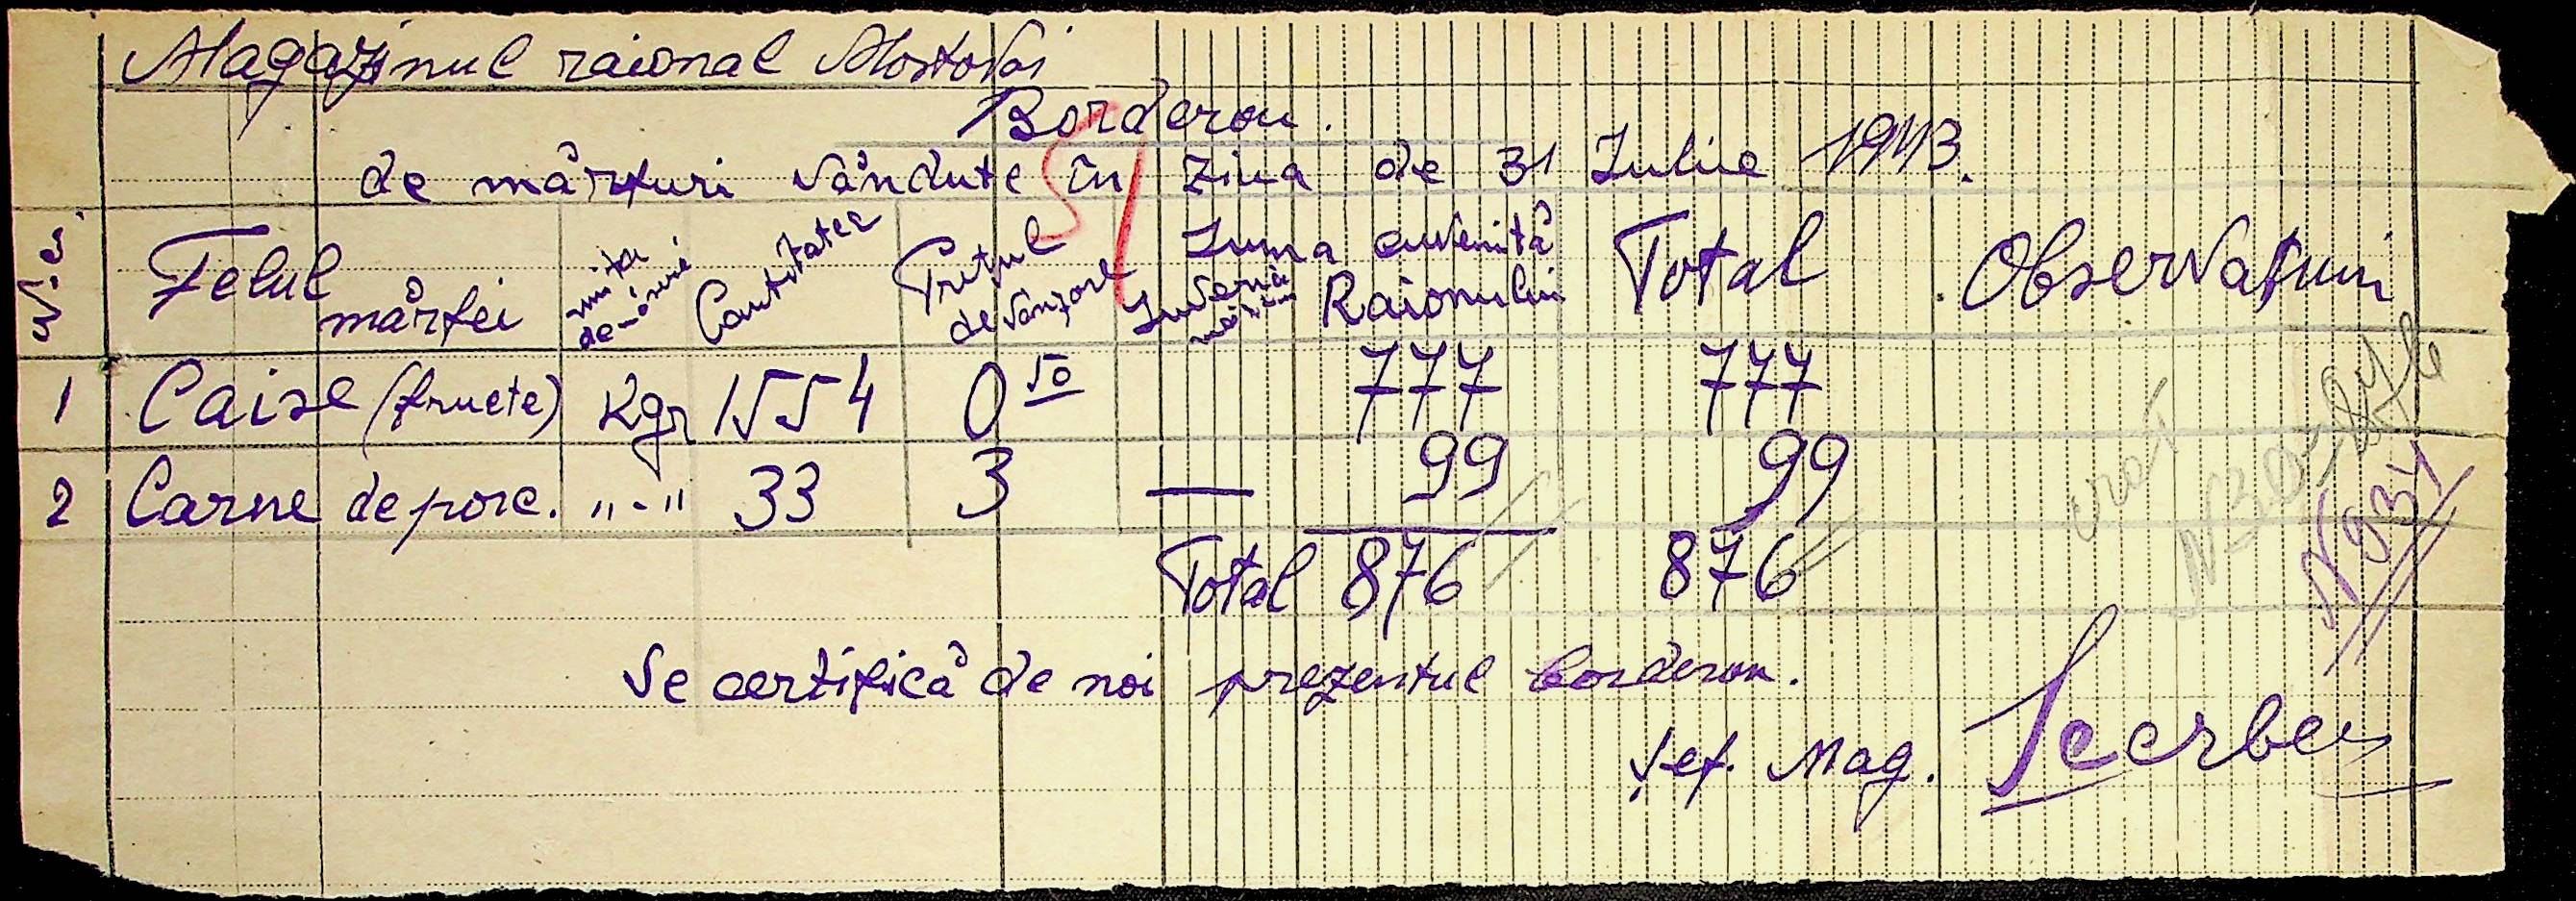 Magazinul raional Mostovoi
Borderou.
de mărfuri vândute în ziua de 31 Iulie 1943.
N. c. Felul mărfei unitea de măsură Cantitatea Prețul de vânzare Suma cuvenită Raionului Total Observațiuni
1 Caise (fructe) Kgr 1554 0 50 777 777
2 Carne de porc. "-" 33 3 — 99 99
Total 876 876
Se certifică de noi prezentul borderou.
Șef. Mag.
N 931
51